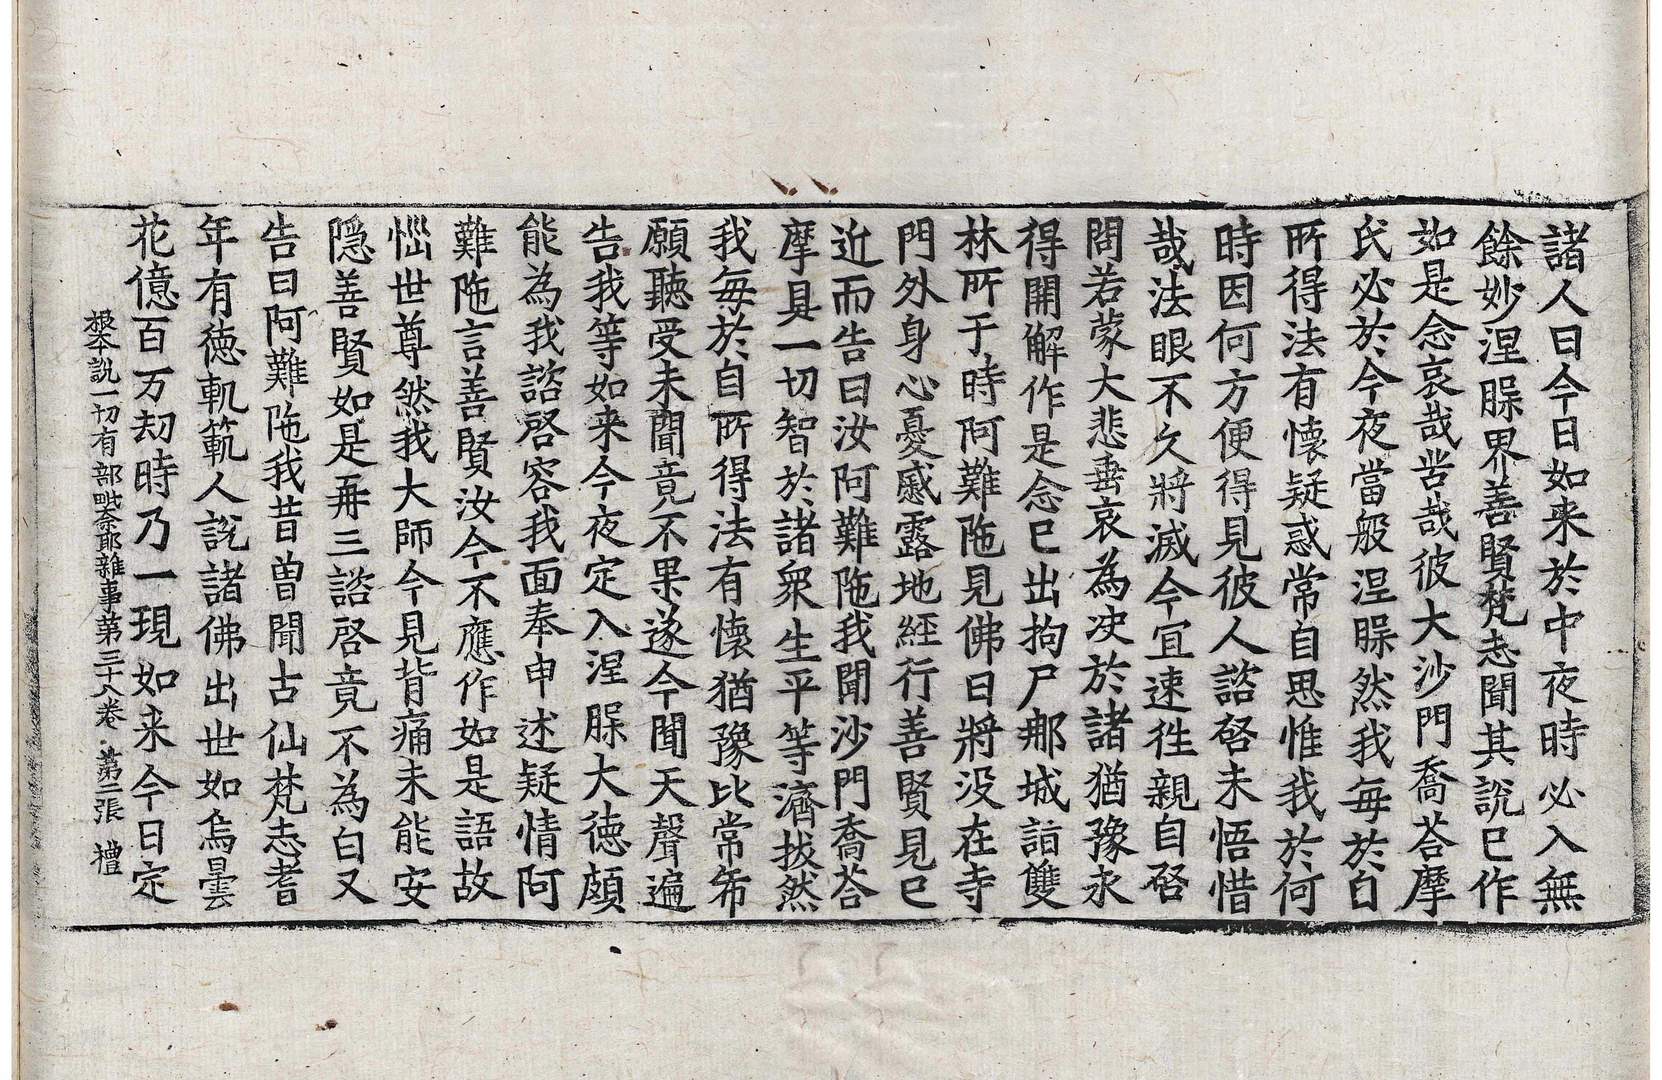 諸人曰今日如来於中夜時必入無
餘妙涅䏶界善賢梵志聞其說已作
如是念哀哉苦哉彼大沙門喬荅摩
氏必於今夜當般涅䏶然我毎於自
所得法有懷疑惑常自思惟我於何
時因何方便得見彼人諮啓未悟惜
哉法眼不久將滅今宜速徃親自啓
問若蒙大悲垂哀為决於諸猶豫永
得開解作是念已出拘尸那城詣雙
林所于時阿難陁見佛日將没在寺
門外身心憂慼露地經行善賢見已
近而告曰汝阿難陁我聞沙門喬荅
摩具一切智於諸衆生平等濟拔然
我毎於自所得法有懷猶豫比常希
願聽受未聞竟不果遂今聞天聲遍
告我等如来今夜定入涅䏶大徳頗
能為我諮啓容我面奉申述疑情阿
難陁言善賢汝今不應作如是語故
惱世尊然我大師今見背痛未能安
隱善賢如是再三諮啓竟不為白又
告曰阿難陁我昔曽聞古仙梵志耆
年有徳軌範人說諸佛出世如烏曇
花億百万劫時乃一現如来今日定
根本說一切有部毗奈耶雜事第三十八卷 第二張 禮